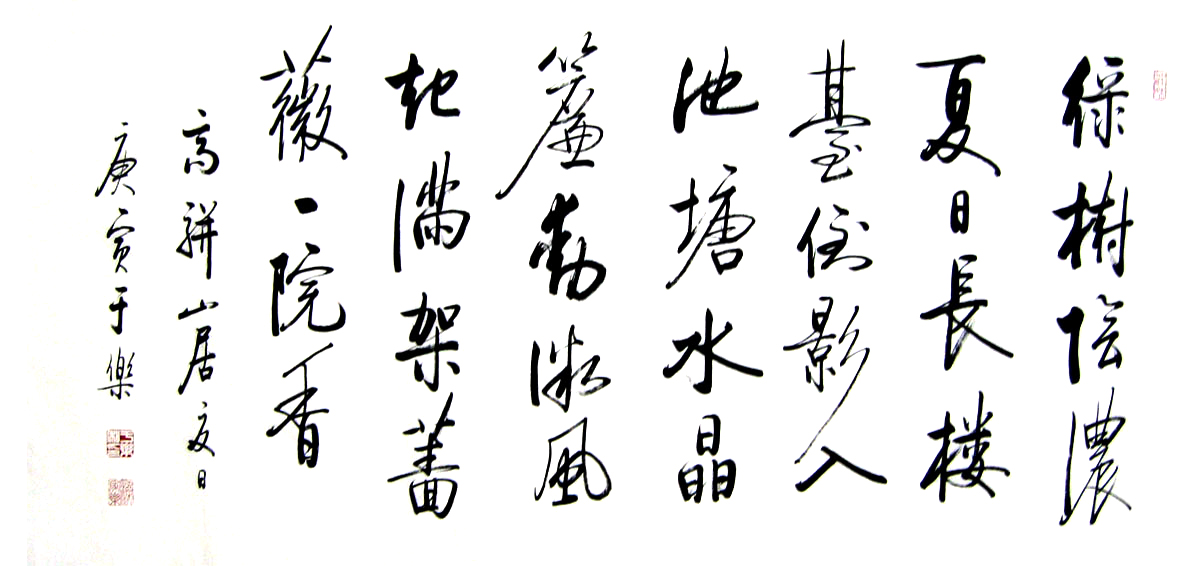 綠樹陰濃
夏日長楼
臺倒影入
池塘水晶
簾動微風
起滿架薔
薇一院香
高駢山居夏日
庚寅于樂